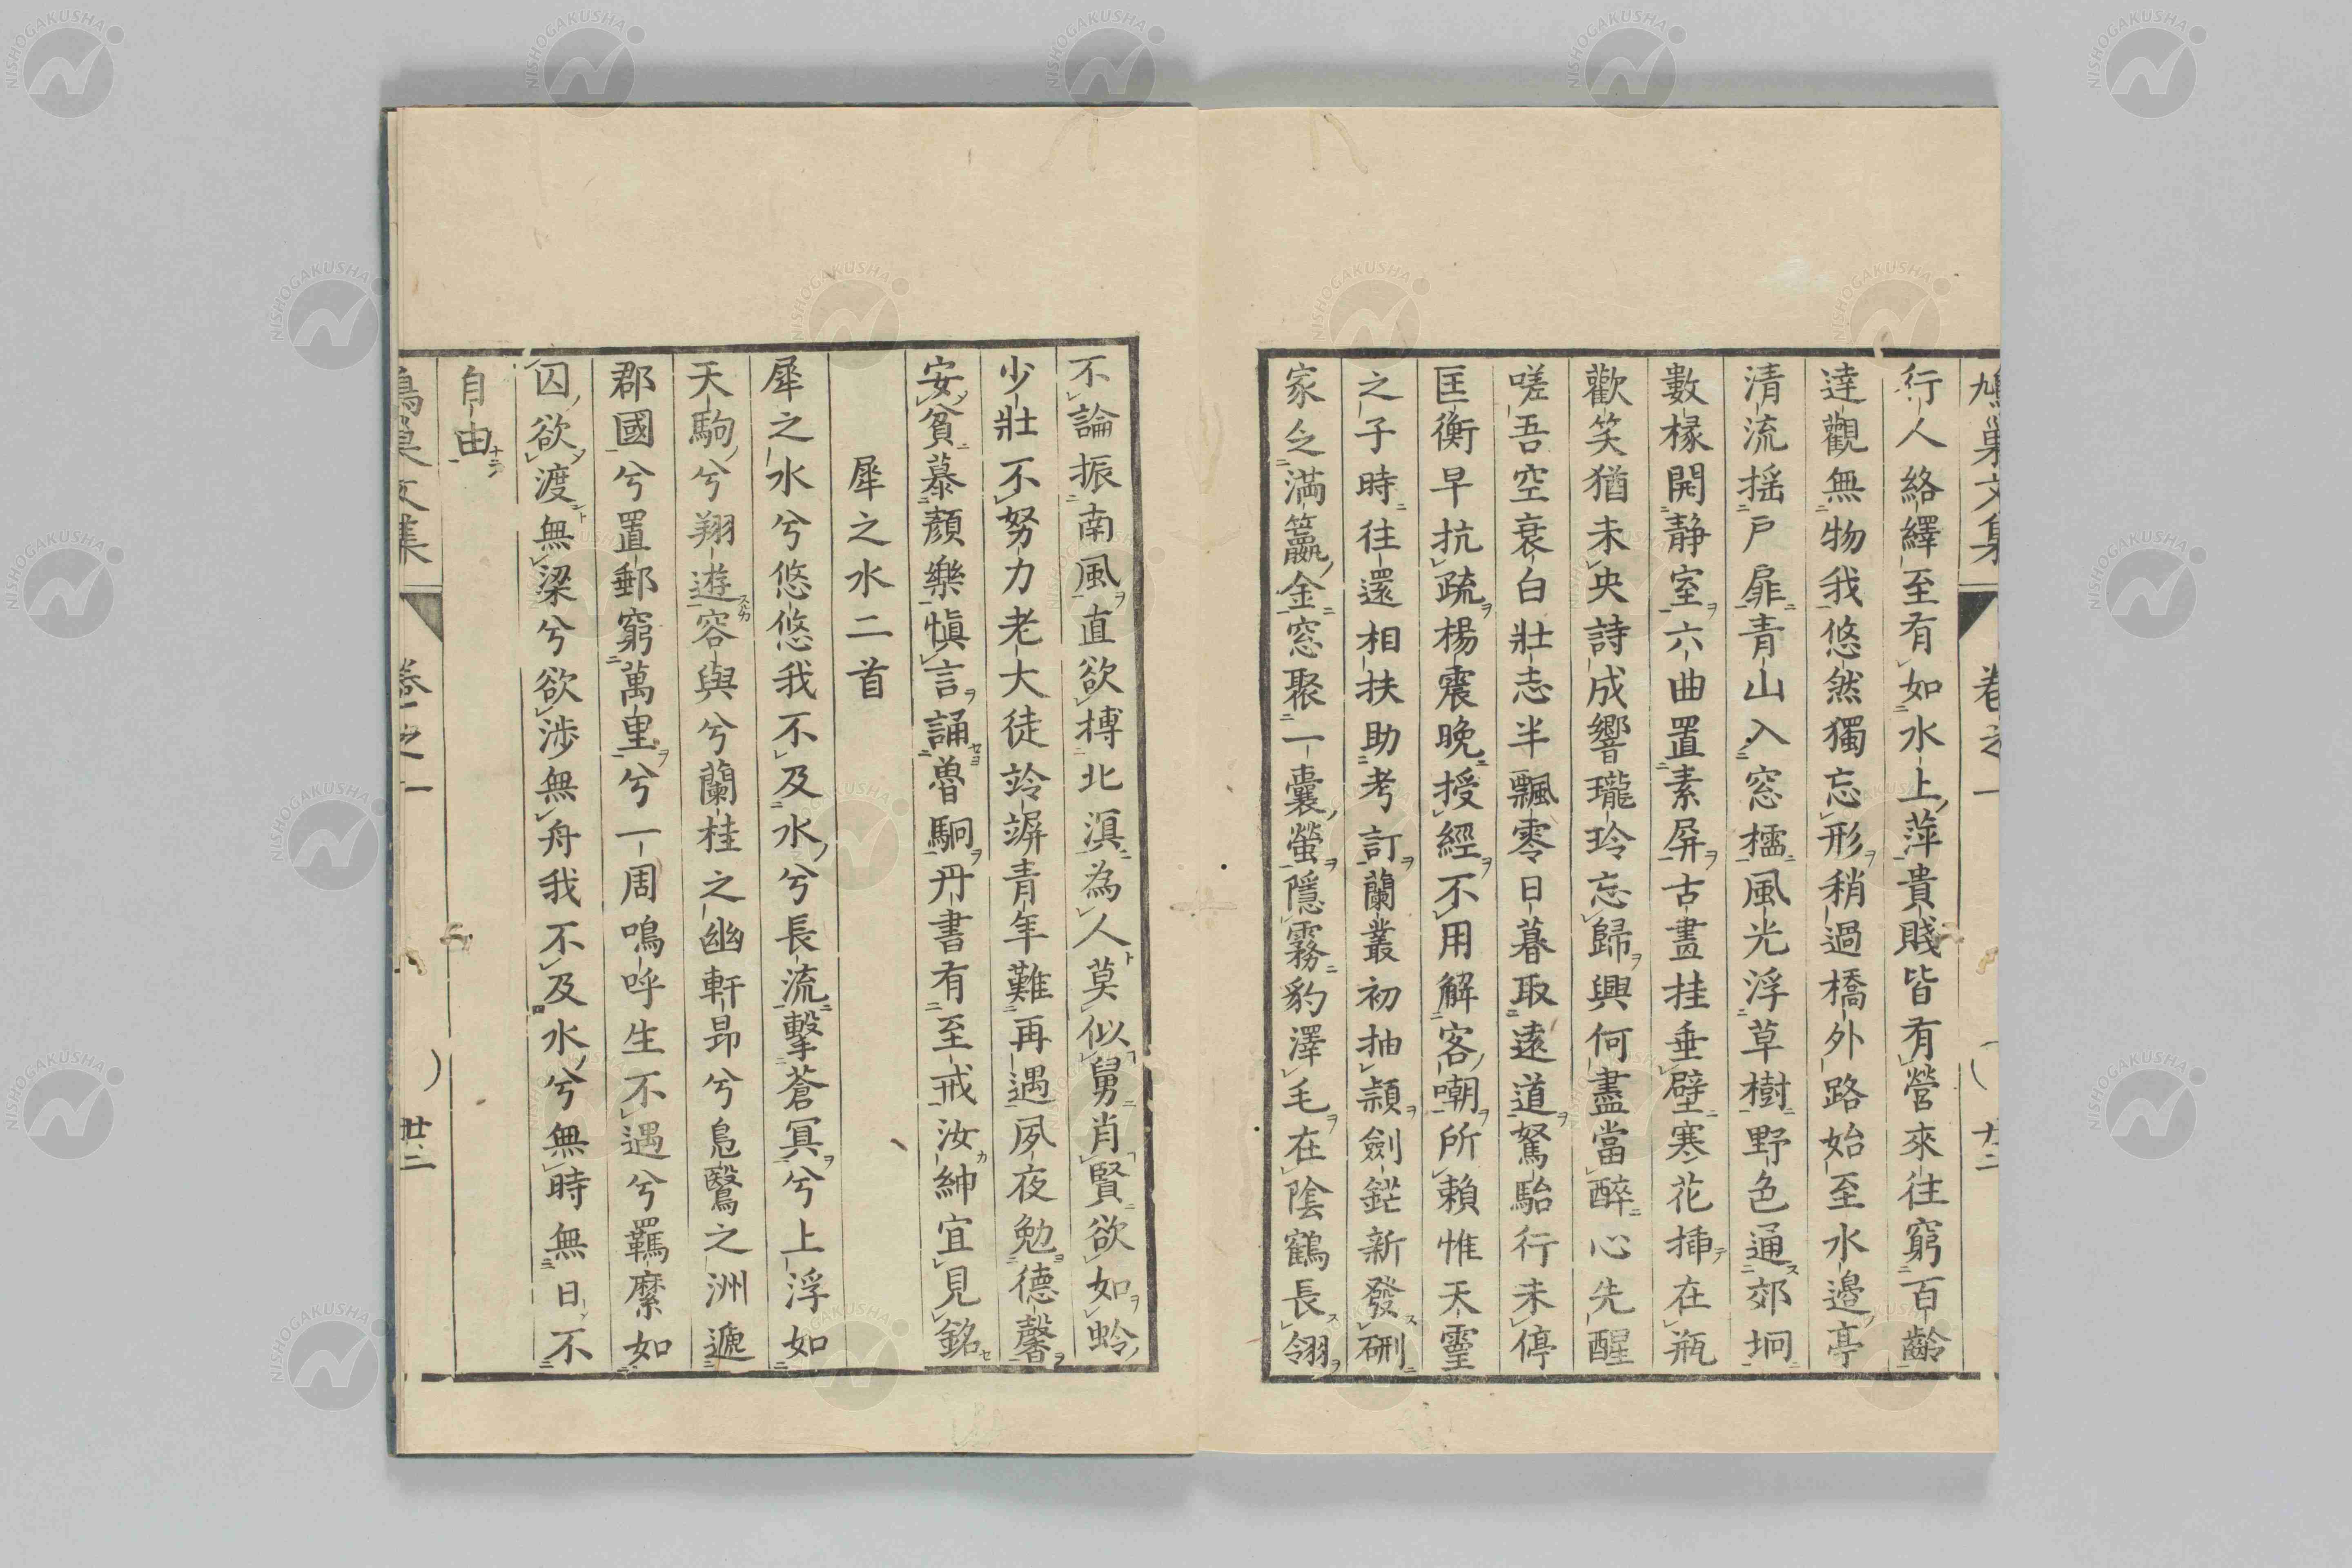 鳩巢文集 卷之一 廿二
行人絡繹至有如水上萍貴賤皆有營來往窮百齡
達觀無物我悠然獨忘形稍過橋外路始至水邉亭
清流揺戶扉青山入窓櫺風光浮草樹野色通郊坰
數椽開静室六曲置素屏古畫挂垂壁寒花挿在瓶
歡笑猶未央詩成響瓏玲忘歸興何盡當醉心先醒
嗟吾空衰白壯志半飄零日暮取遠道駑駘行未停
匡衡早抗疏楊震晚授經不用解客嘲所賴惟天靈
之子時往還相扶助考訂蘭叢初抽穎劍鋩新發硎
家乏滿籯金窓聚一囊螢隱霧豹澤毛在陰鶴長翎
不論振南風直欲搏北溟為人莫似舅肖賢欲如蛉
少壯不努力老大徒竛竮青年難再遇夙夜勉德馨
安貧慕顏樂愼言誦魯駉丹書有至戒汝紳宜見銘
犀之水二首
犀之水兮悠悠我不及水兮長流擊蒼冥兮上浮如
天駒兮翔遊容與兮蘭桂之幽軒昂兮鳧鷖之洲遞
郡國兮置郵窮萬里兮一周嗚呼生不遇兮羈縻如
囚欲渡無梁兮欲涉無舟我不及水兮無時無日不
自由
鳩巢文集 卷之一 廿二